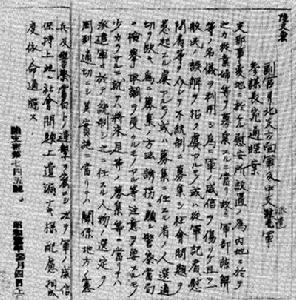 陸支密
副官ヨリ北支方面軍及中支派遣軍
参謀長宛通牒案
支那事変地ニ於ケル慰安所設置ノ為内地ニ於テ
之カ従業婦等ヲ募集スルニ当リ故ラニ軍部諒解
等ノ名儀ヲ利用シ為ニ軍ノ威信ヲ傷ツケ且ツ一
般民ノ誤解ヲ招ク虞アルモノ或ハ従軍記者慰
問者等ヲ介シテ不統制ニ募集シ社会問題ヲ
惹起スル虞アルモノ或ハ募集ニ任スル者ノ人選適
切ヲ欠キ為ニ募集ノ方法誘拐ニ類シ警察当局
ニ検挙取調ヲ受クルモノアル等注意ヲ要スルモノ
少カラサルニ就テハ将来是等ノ募集等ニ当リテハ
派遣軍ニ於テ統制シ之ニ任スル人物ノ選定ヲ
周到適切ニシ其実施ニ当リテハ関係地方ノ憲
兵及警察当局トノ連繋ヲ密ニシ以テ軍ノ威信
保持上並ニ社会問題上遺漏ナキ様配慮相成
度依命通牒ス